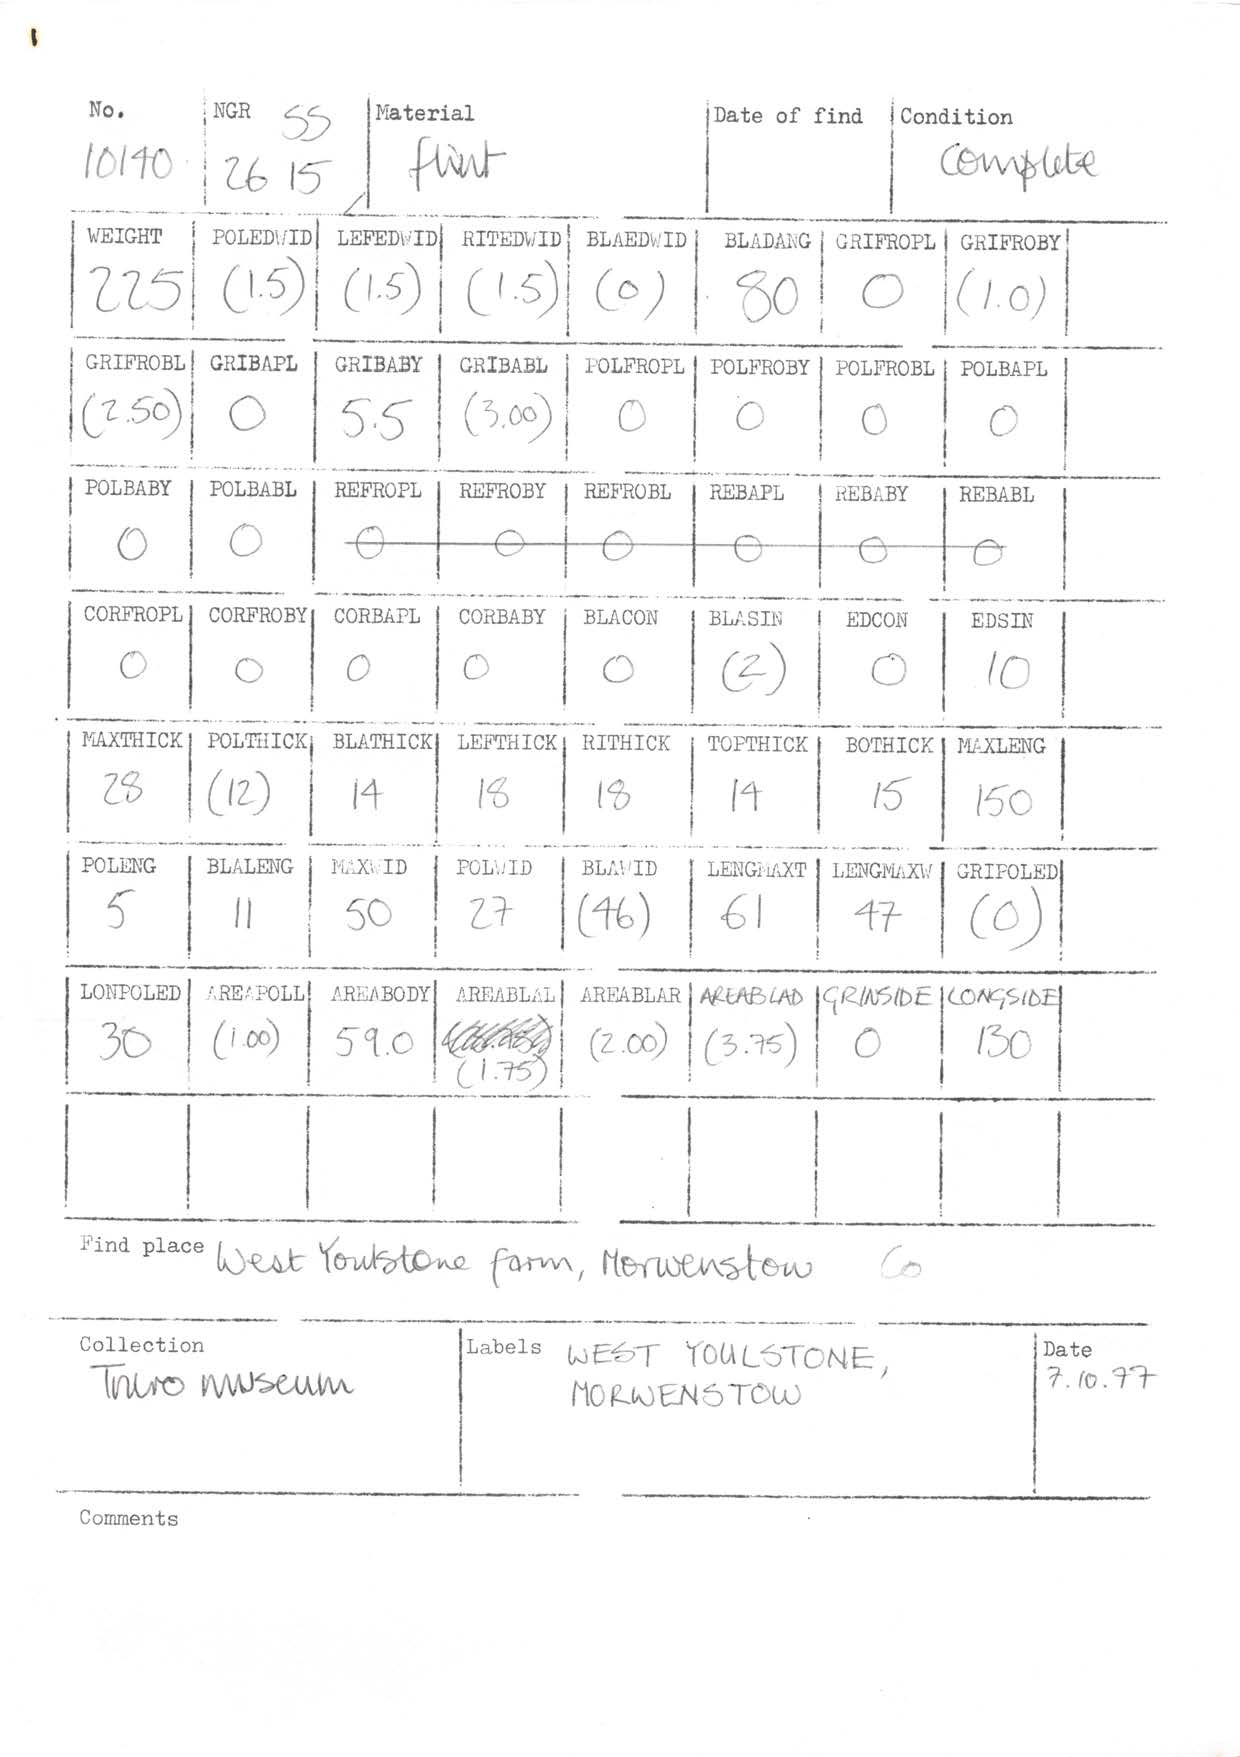 No. NGR SS Material Date of find Condition
10140 26 15 flint complete
WEIGHT POLEDWID LEFEDWID RITEDWID BLAEDWID BLADANG GRIFROPL GRIFROBY
225 (1.5) (1.5) (1.5) (0) 80 0 (1.0)
GRIFROBL GRIBAPL GRIBABY GRIBABL POLFROPL POLFROBY POLFROBL POLBAPL
(2.50) 0 5.5 (3.00) 0 0 0 0
POLBABY POLBABL REFROPL REFROBY REFROBL REBAPL REBABY REBABL
0 0 0 0 0 0 0 0
CORFROPL CORFROBY CORBAPL CORBABY BLACON BLASIN EDCON EDSIN
0 0 0 0 0 (2) 0 10
MAXTHICK POLTHICK BLATHICK LEFTHICK RITHICK TOPTHICK BOTHICK MAXLENG
28 (12) 14 18 18 14 15 150
POLENG BLALENG MAXWID POLWID BLAWID LENGMAXT LENGMAXW GRIPOLED
5 11 50 27 (46) 61 47 (0)
LONPOLED AREAPOLL AREABODY AREABLAL AREABLAR AREABLAD GRINSIDE LONGSIDE
30 (1.00) 59.0 (1.75) (2.00) (3.75) 0 130
Find place West Youlstone farm, Morwenstow Co
Collection Labels WEST YOULSTONE, Date
Truro museum MORWENSTOW 7.10.77
Comments